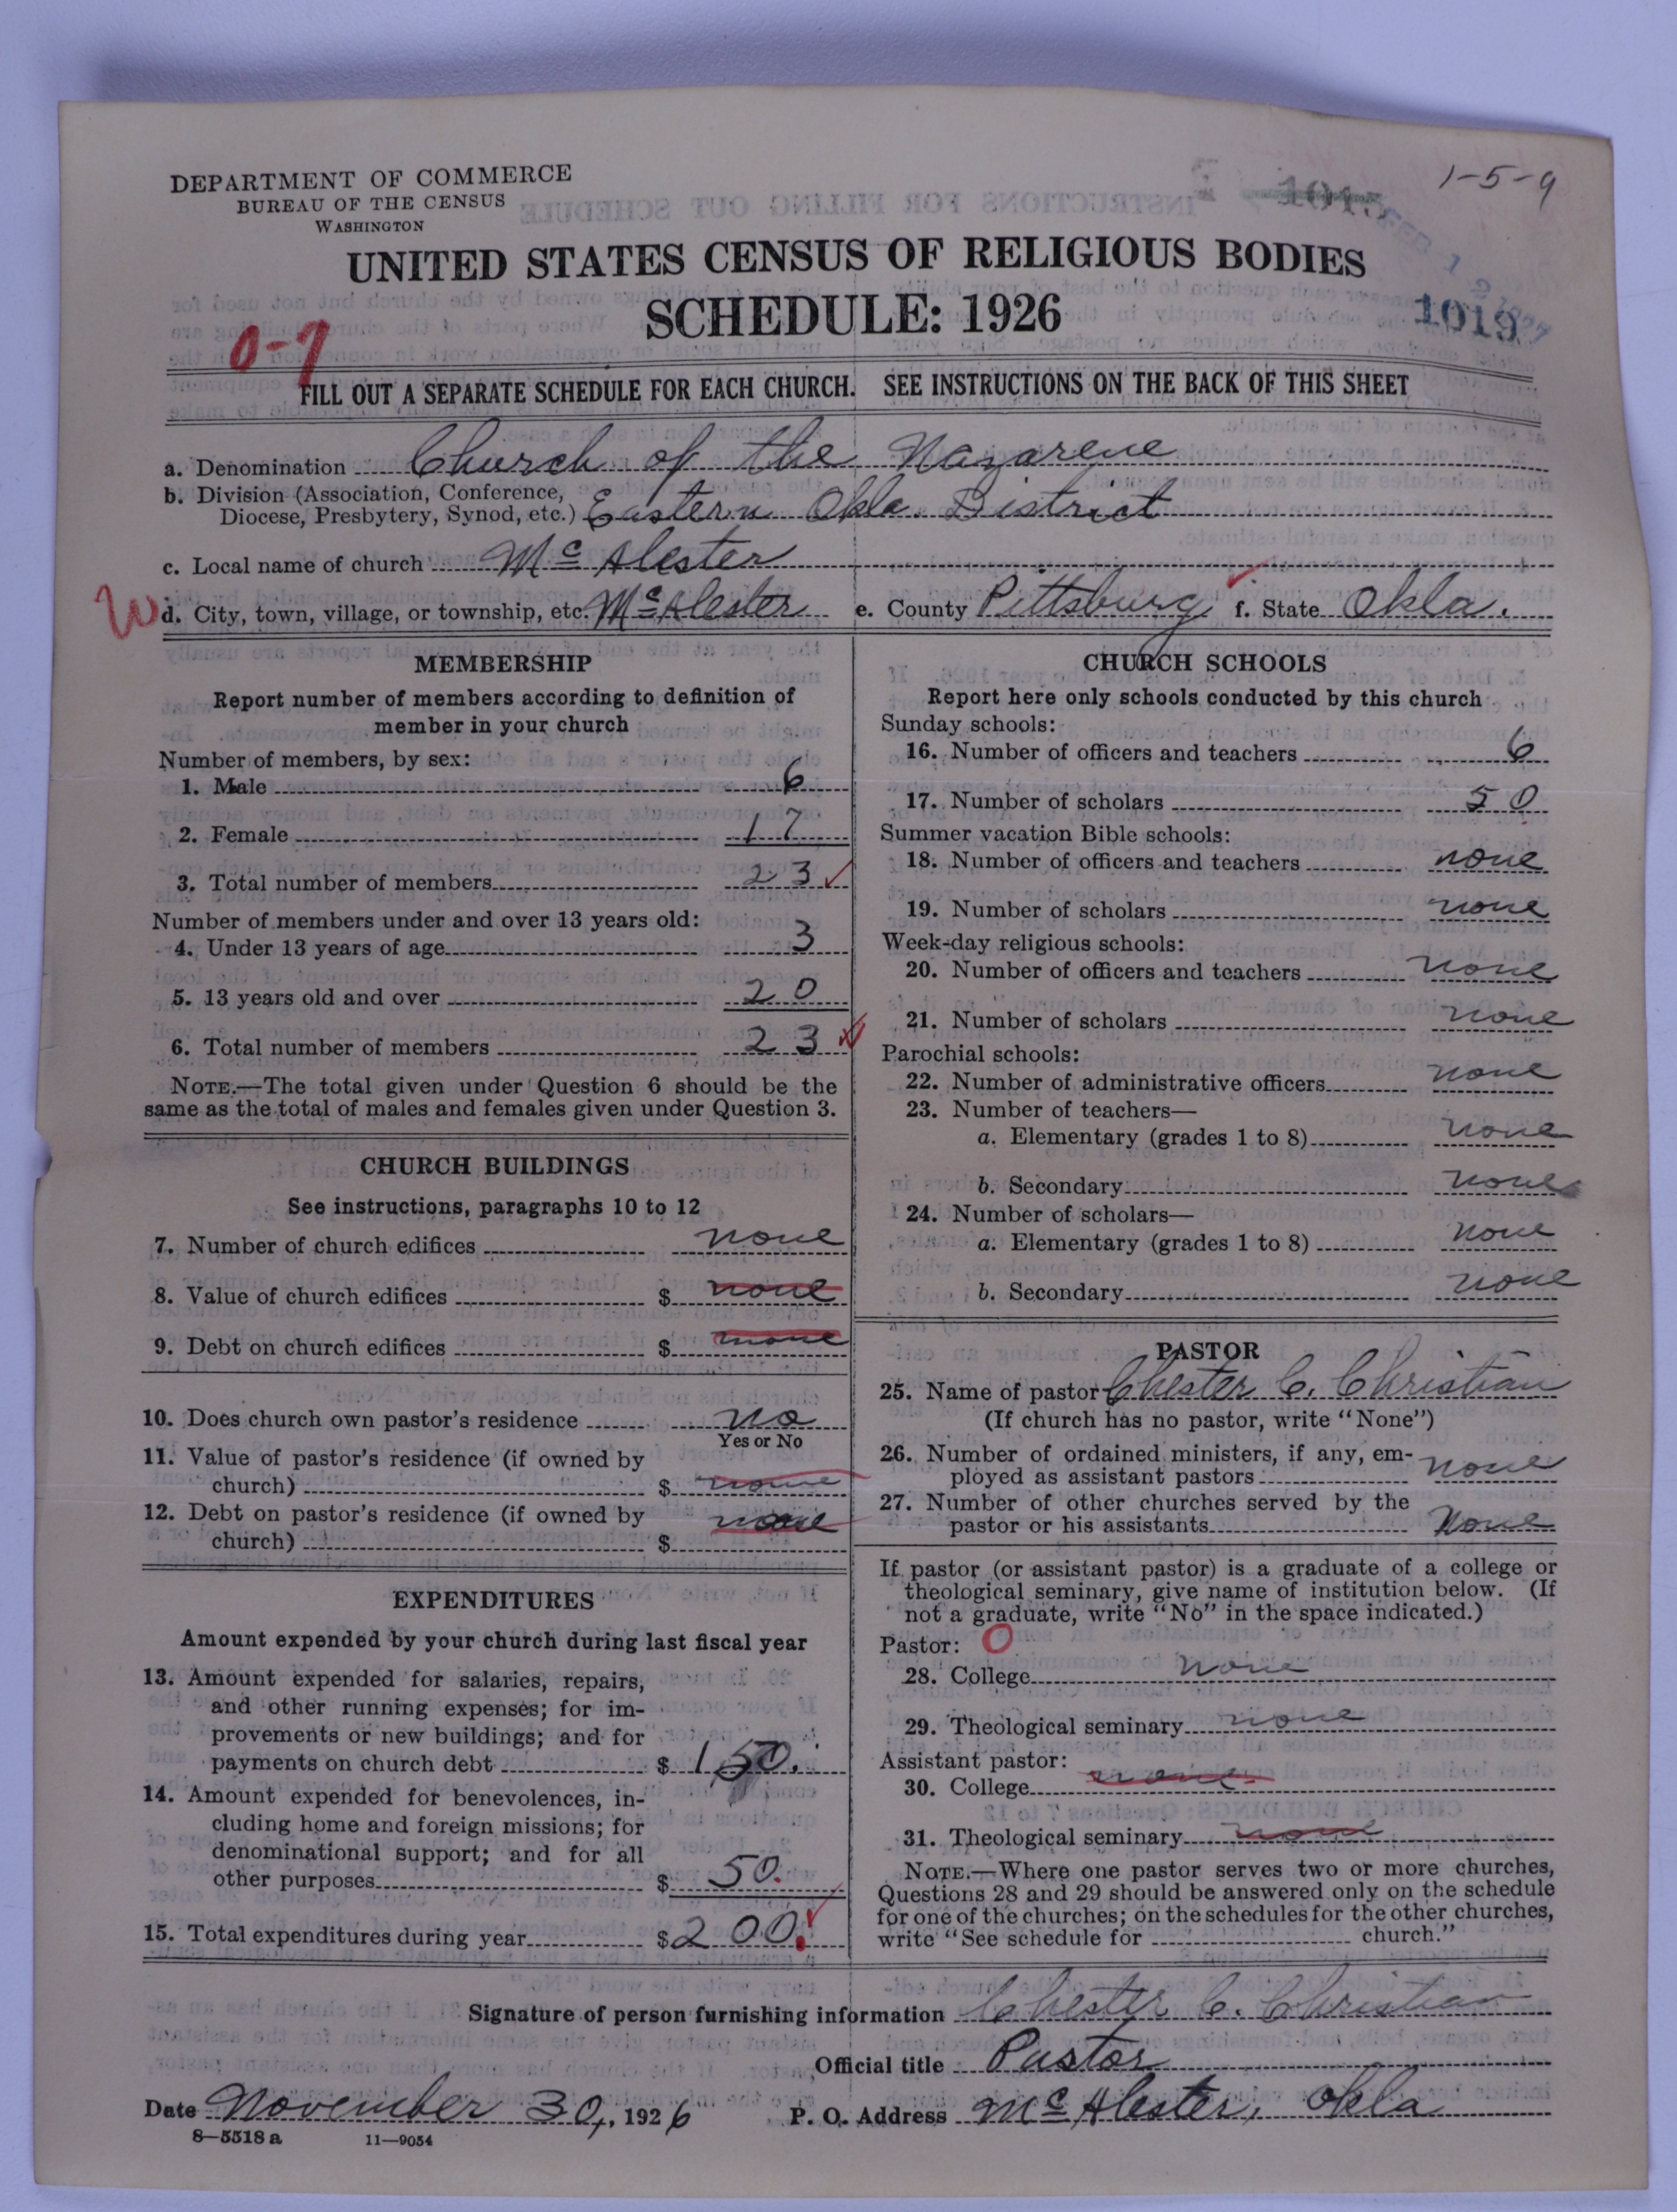 DEPARTMENT OF COMMERCE
BUREAU OF THE CENSUS
WASHINGTON
1-5-9
1015
FEB 1 2
UNITED STATES CENSUS OF RELIGIOUS BODIES
SCHEDULE: 1926
1019
0-7
FILL OUT A SEPARATE SCHEDULE FOR EACH CHURCH. SEE INSTRUCTIONS ON THE BACK OF THIS SHEET
a. Denomination Church of the Nazarene
b. Division (Association, Conference,
Diocese, Presbytery, Synod, etc.) Eastern Okla. District
c. Local name of church McAlester
W d. City, town, village, or township, etc. McAlester e. County Pittsburg f. State Okla.
MEMBERSHIP
Report number of members according to definition of
member in your church
Number of members, by sex:
1. Male 6
2. Female 17
3. Total number of members 23
Number of members under and over 13 years old:
4. Under 13 years of age 3
5. 13 years old and over 20
6. Total number of members 23
NOTE.—The total given under Question 6 should be the
same as the total of males and females given under Question 3.
CHURCH BUILDINGS
See instructions, paragraphs 10 to 12
7. Number of church edifices none
8. Value of church edifices $ none
9. Debt on church edifices $ none
10. Does church own pastor's residence no
Yes or No
11. Value of pastor's residence (if owned by
church) $ none
12. Debt on pastor's residence (if owned by
church) $ none
EXPENDITURES
Amount expended by your church during last fiscal year
13. Amount expended for salaries, repairs,
and other running expenses; for im-
provements or new buildings; and for
payments on church debt $ 150.
14. Amount expended for benevolences, in-
cluding home and foreign missions; for
denominational support; and for all
other purposes $ 50.
15. Total expenditures during year $ 200.
CHURCH SCHOOLS
Report here only schools conducted by this church
Sunday schools:
16. Number of officers and teachers 6
17. Number of scholars 50
Summer vacation Bible schools:
18. Number of officers and teachers none
19. Number of scholars none
Week-day religious schools:
20. Number of officers and teachers none
21. Number of scholars none
Parochial schools:
22. Number of administrative officers none
23. Number of teachers—
a. Elementary (grades 1 to 8) none
b. Secondary none
24. Number of scholars—
a. Elementary (grades 1 to 8) none
b. Secondary none
PASTOR
25. Name of pastor Chester C. Christian
(If church has no pastor, write "None")
26. Number of ordained ministers, if any, em-
ployed as assistant pastors none
27. Number of other churches served by the
pastor or his assistants None
If pastor (or assistant pastor) is a graduate of a college or
theological seminary, give name of institution below. (If
not a graduate, write "No" in the space indicated.)
Pastor: O
28. College none
29. Theological seminary none
Assistant pastor:
30. College none
31. Theological seminary none
NOTE.—Where one pastor serves two or more churches,
Questions 28 and 29 should be answered only on the schedule
for one of the churches; on the schedules for the other churches,
write "See schedule for church."
Signature of person furnishing information Chester C. Christian
Official title Pastor
Date November 30, 1926 P. O. Address McAlester, Okla
8—5518 a 11—9054